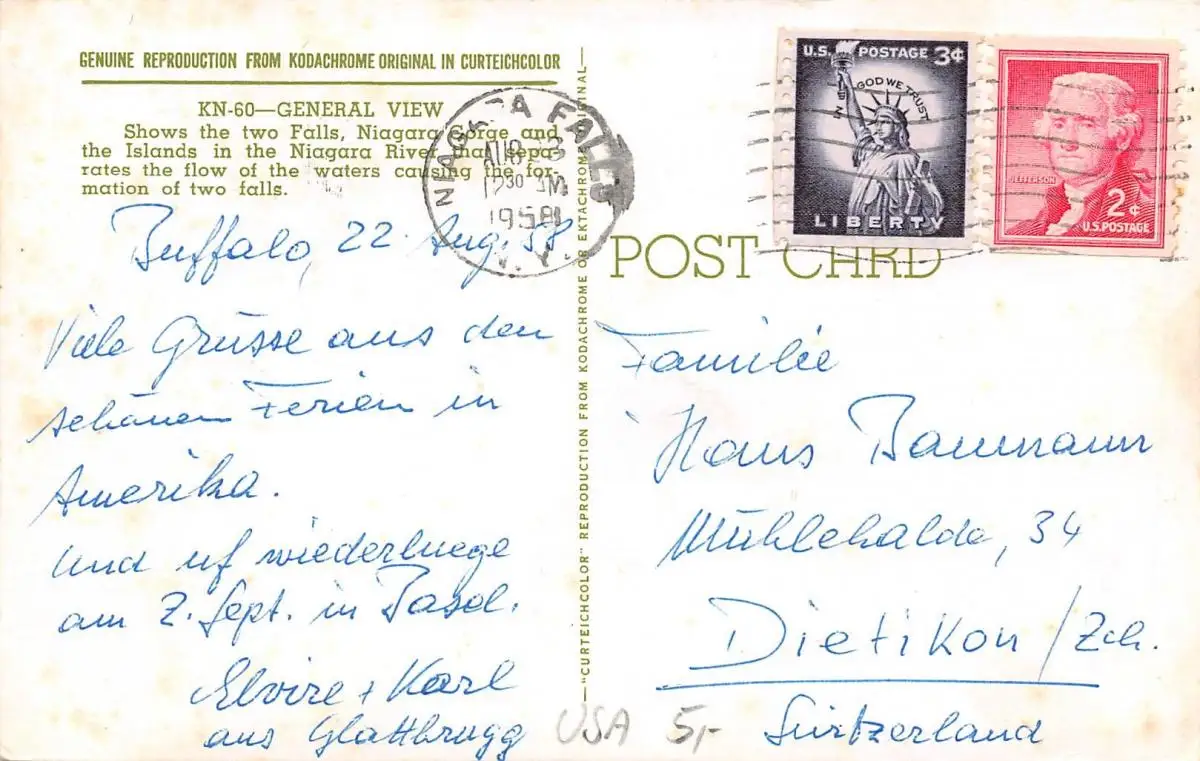 GENUINE REPRODUCTION FROM KODACHROME ORIGINAL IN CURTEICHCOLOR
KN-60—GENERAL VIEW
Shows the two Falls, Niagara Gorge and
the Islands in the Niagara River that sepa-
rates the flow of the waters causing the for-
mation of two falls.
Buffalo, 22. Aug. 58
Viele Grüsse aus den
schönen Ferien in
Amerika.
Und uf wiederluege
am 2. Sept. in
Elvire + Karl
aus Glattbrugg
USA 5,-
NIAGARA FALLS
12 30 PM
1958
N. Y.
—"CURTEICHCOLOR" REPRODUCTION FROM KODACHROME OR EKTACHROME ORIGINAL—
U.S. POSTAGE 3¢
IN GOD WE TRUST
LIBERTY
JEFFERSON
2¢
U.S. POSTAGE
POST CARD
Familie
Hans Baumann
Mühlehalde, 34
Dietikon/Zch.
Switzerland